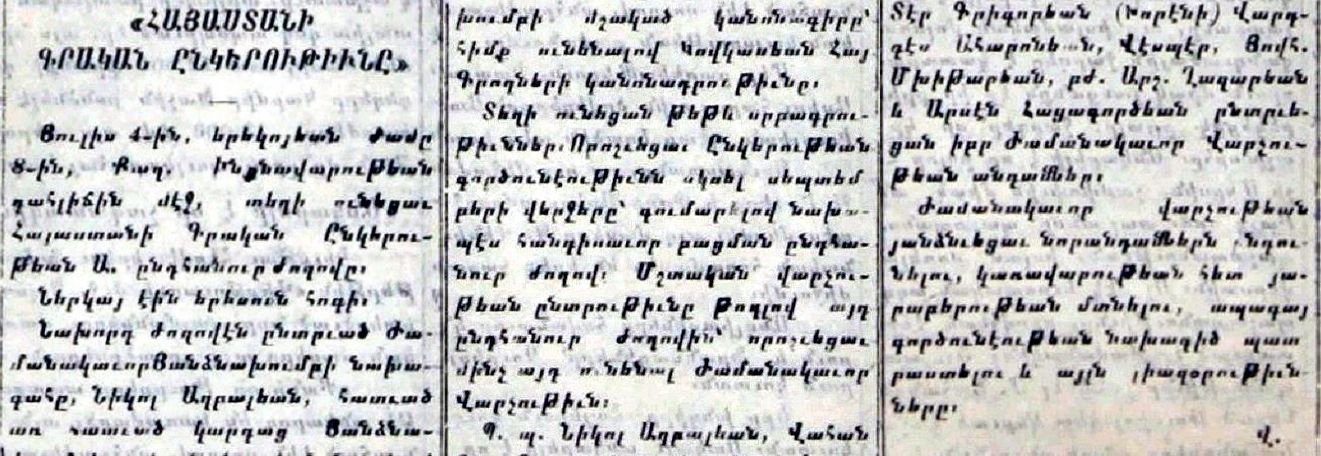 «ՀԱՅԱՍՏԱՆԻ
ԳՐԱԿԱՆ ԸՆԿԵՐՈՒԹԻՒՆԸ»
Յուլիս 4-ին, երեկոյեան ժամը
8-ին, Քաղ. Ինքնավարութեան
դահլիճին մէջ, տեղի ունեցաւ
Հայաստանի Գրական Ընկերու-
թեան Ա. ընդհանուր ժողովը։
Ներկայ էին երեսուն հոգի։
Նախորդ ժողովէն ընտրւած ժա-
մանակաւոր Յանձնախումբի նախա-
գահը, Նիկոլ Աղբալեան, հատւած
առ հատւած կարդաց Յանձնա-
խումբի մշակած կանոնագիրը՝
հիմք ունենալով Կովկասեան Հայ
Գրողների կանոնադրութիւնը։
Տեղի ունեցան թեթև սրբագրու-
թիւններ. Որոշւեցաւ Ընկերութեան
գործունէութիւնն սկսել սեպտեմ
բերի վերջերը՝ գումարելով նախ
պէս հանդիսաւոր բացման ընդհա-
նուր ժողով։ Մշտական վարչու-
թեան ընտրութիւնը թողլով այդ
ընդհանուր ժողովին՝ որոշւեցաւ
մինչ այդ ունենալ ժամանակաւոր
Վարչութիւն։
Պ. պ. Նիկոլ Աղբալեան, Վահան
Տէր Գրիգորեան (Խորէնի) Վարդ-
գէս Ահարոնեան, Վէսպէր, Յովհ.
Մխիթարեան, բժ. Արշ. Ղազարեան
և Արսէն Հացագործեան ընտրւե-
ցան իբր ժամանակաւոր Վարչու-
թեան անդամներ։
Ժամանակաւոր վարչութեան
յանձնւեցաւ նորանդամներն ընդու-
նելու, կառավարութեան հետ յա-
րաբերութեան մտնելու, ապագայ
գործունէութեան նախագիծ պատ
րաստելու և այլն լիազօրութիւն-
ները։
Վ.